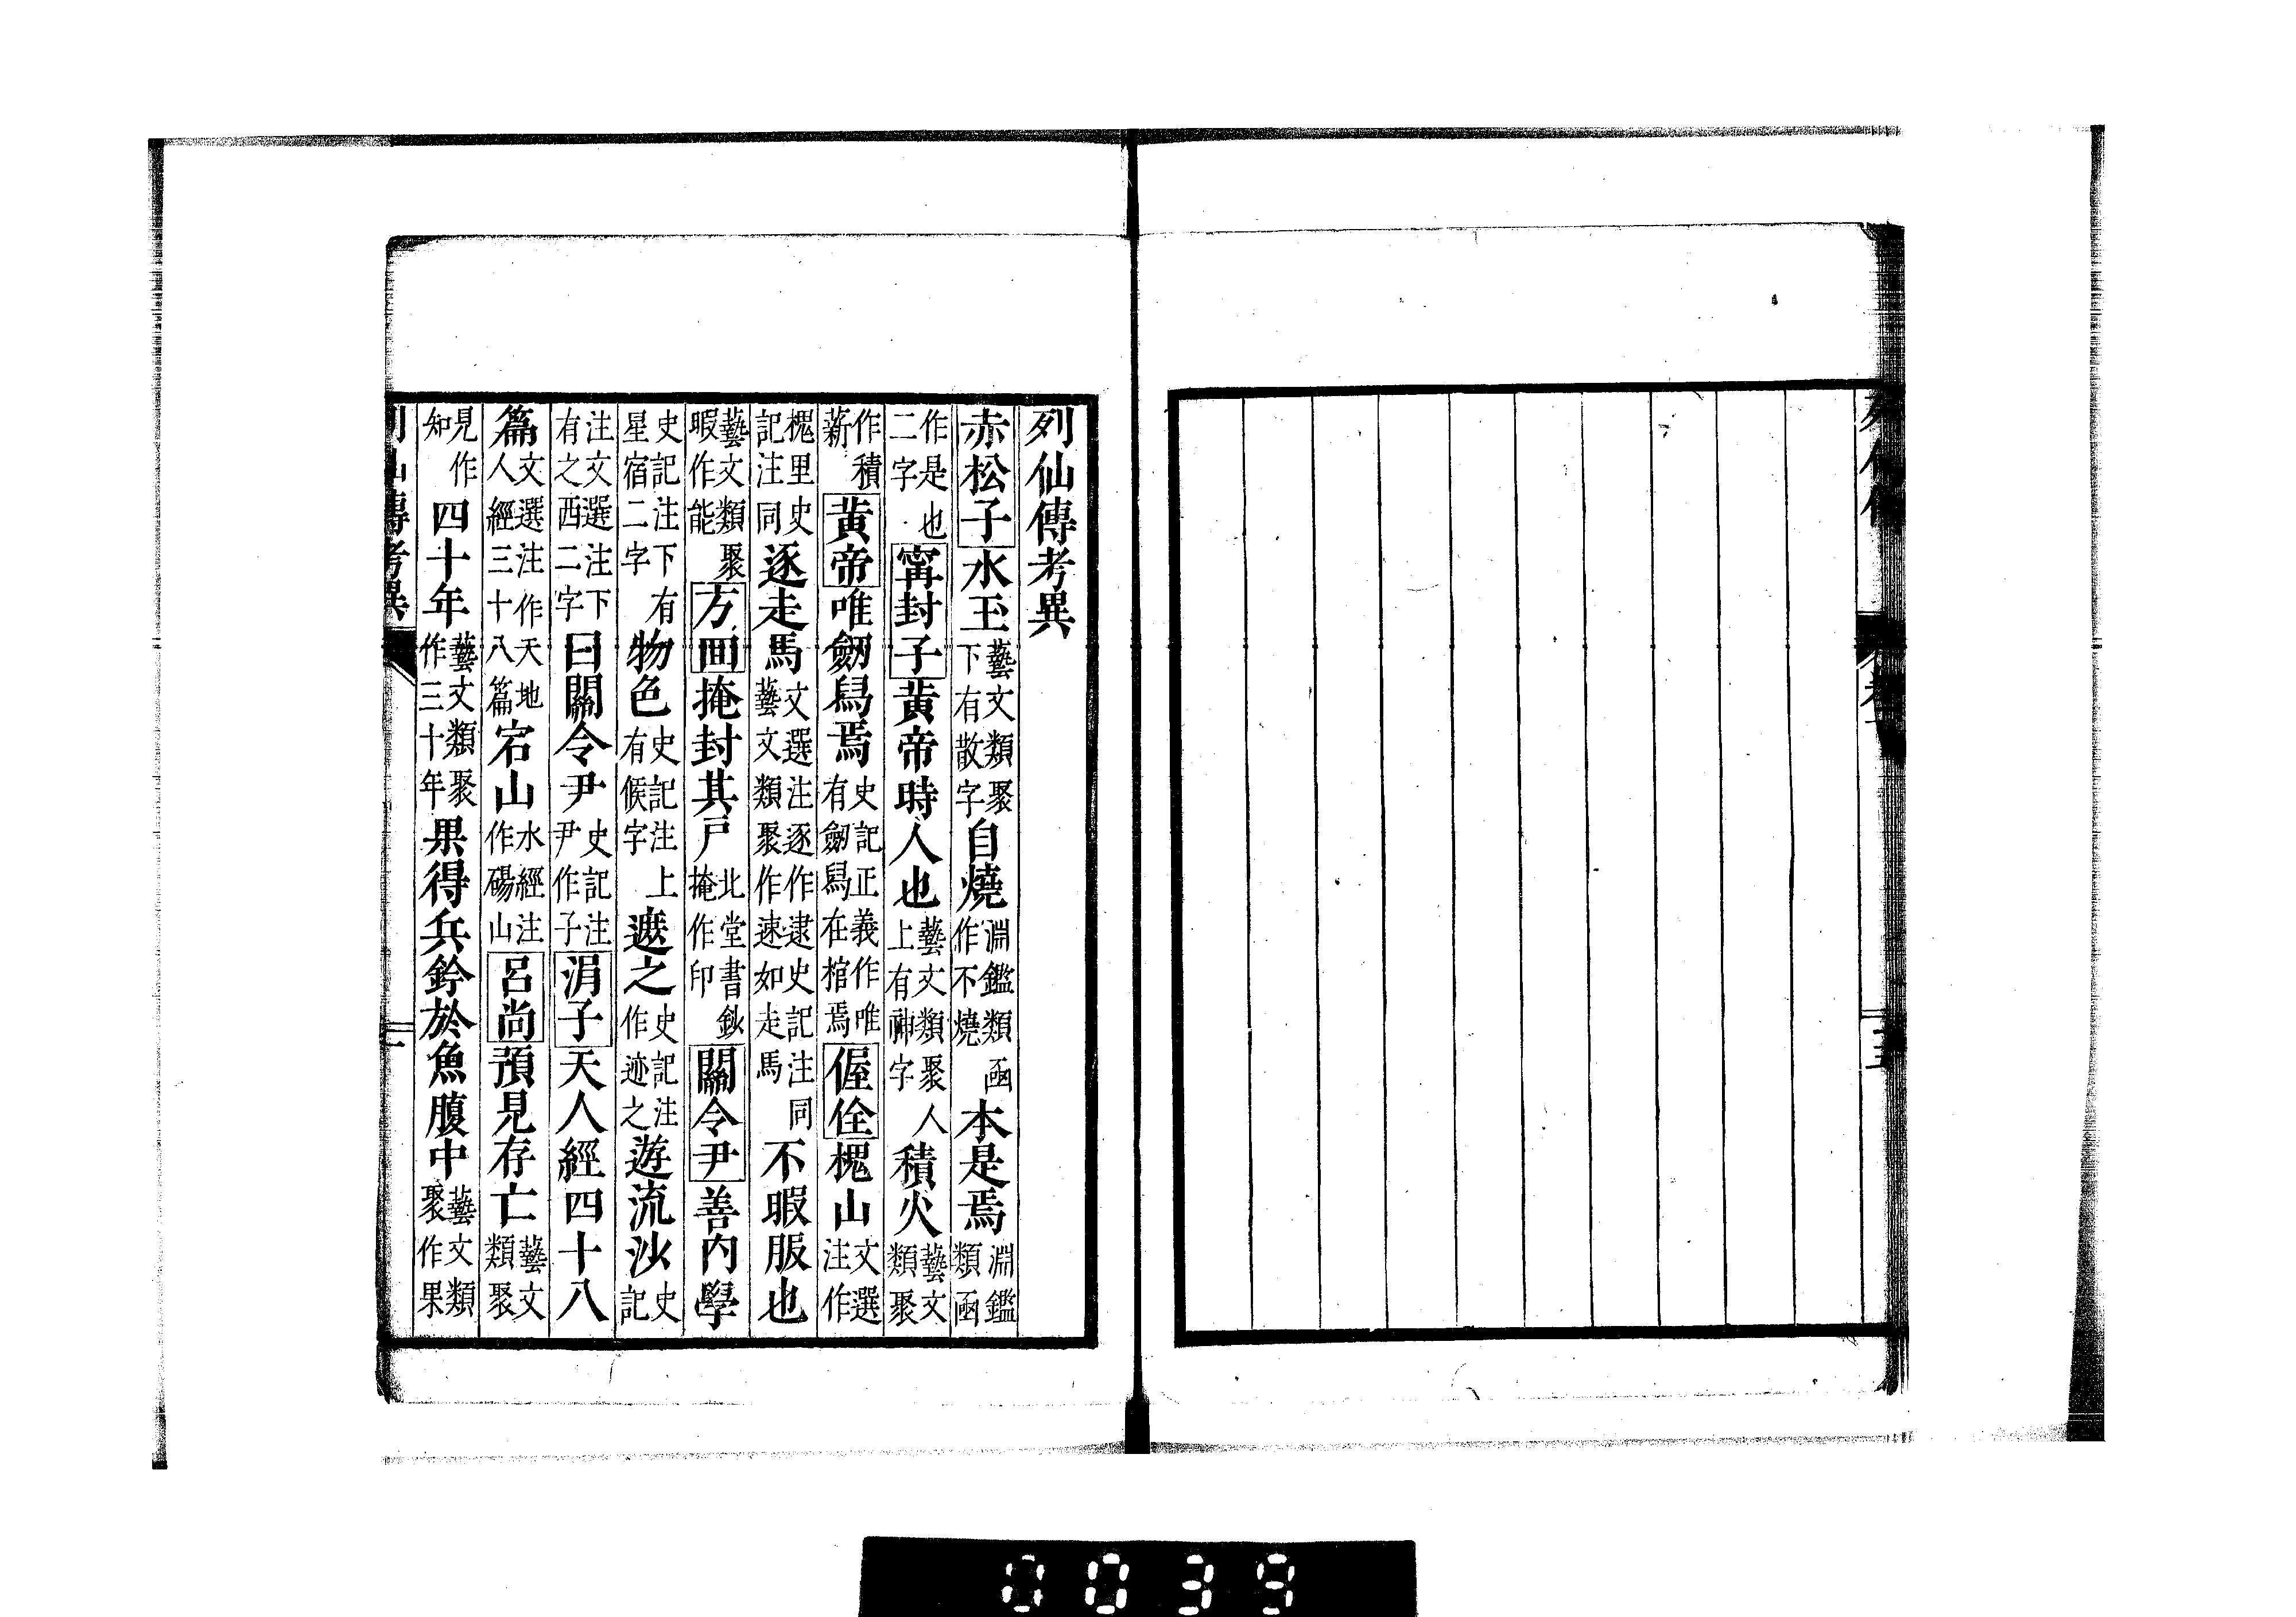 列仙傳考異
赤松子水玉藝文類聚下有散字自燒淵鑑類函作不燒本是焉淵鑑類函
作是也二字甯封子黃帝時人也藝文類聚人上有神字積火藝文類聚
作積薪黃帝唯劒舄焉史記正義作唯有劒舄在棺焉偓佺槐山文選注作
槐里史記注同逐走馬文選注逐作逮史記注同藝文類聚作速如走馬不暇服也
藝文類聚暇作能方回掩封其戶北堂書鈔掩作印關令尹善內學
史記注下有星宿二字物色史記注上有候字遮之史記注作迹之遊流沙史記
注文選注下有之西二字曰關令尹史記注尹作子涓子天人經四十八
篇文選注作天地人經三十八篇宕山水經注作碭山呂尚預見存亡藝文類聚
見作知四十年藝文類聚作三十年果得兵鈐於魚腹中藝文類聚作果
列仙傳考異
0039